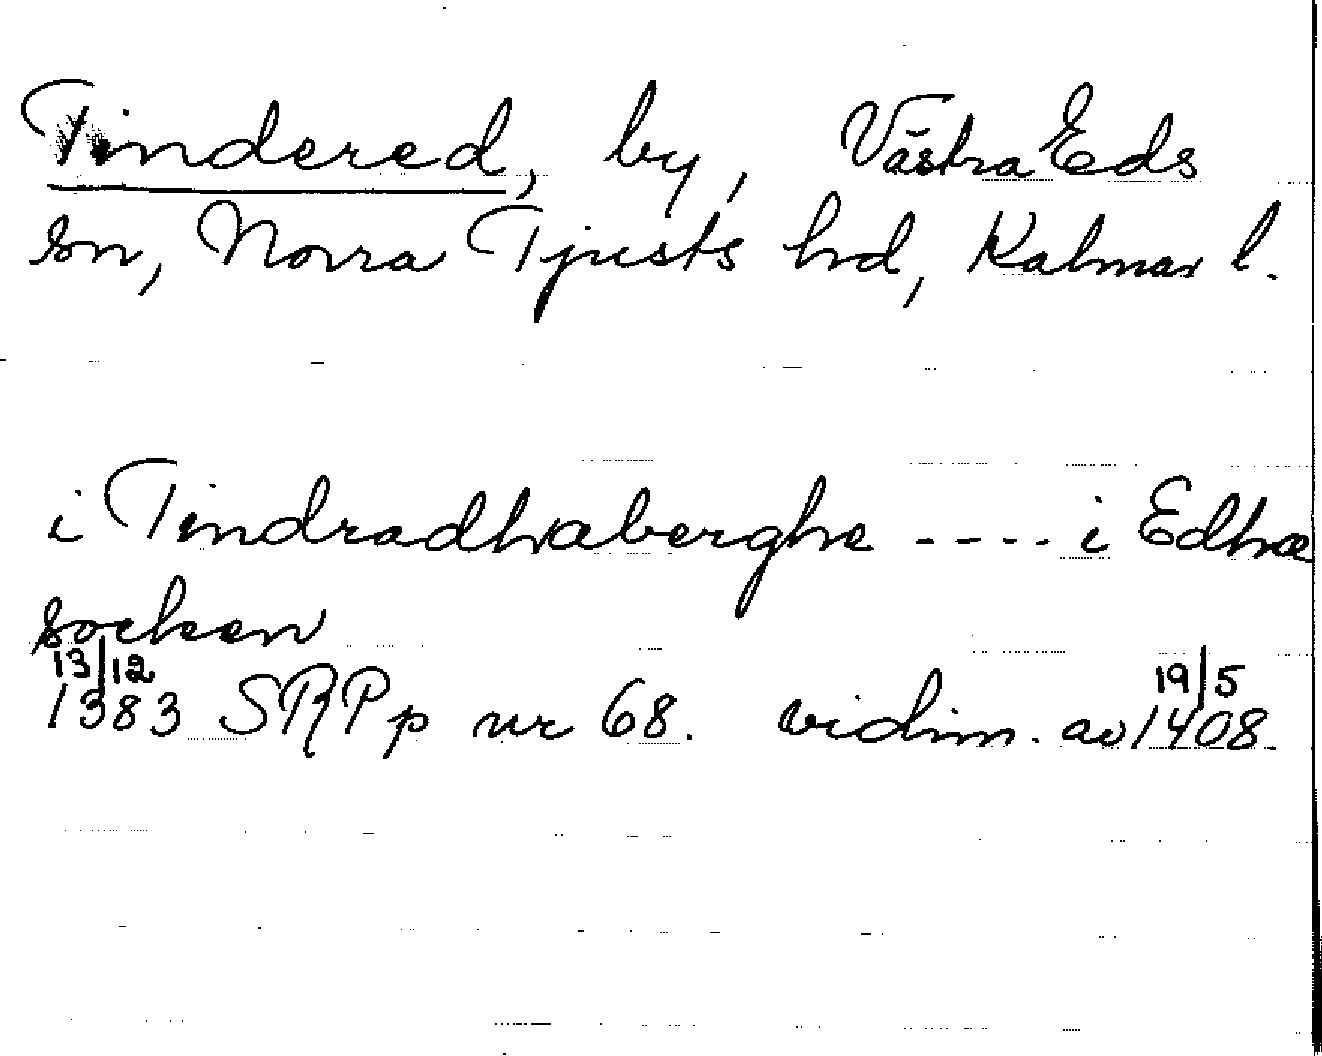 Tindered, by, Västra Eds
sn, Norra Tjusts hd, Kalmar l.
i Tindradhaberghe ---- i Edhæ
socken
13/12
1383 SRPp nr 68. vidim. av 19/5 1408.